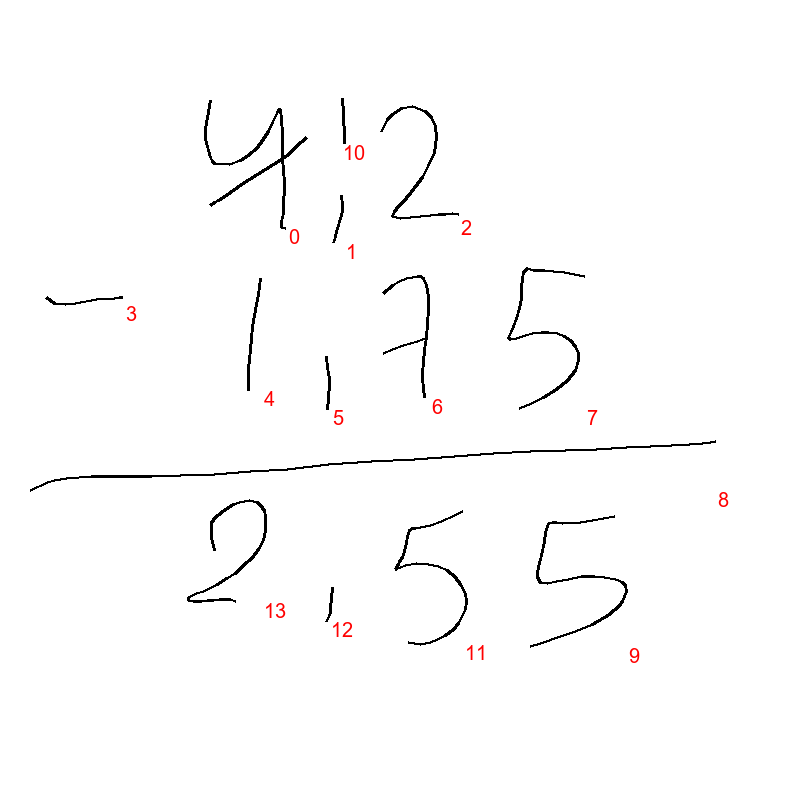 4,12
0 10 1 2
- 1,75
3 4 5 6 7
8
2,55
13 12 11 9